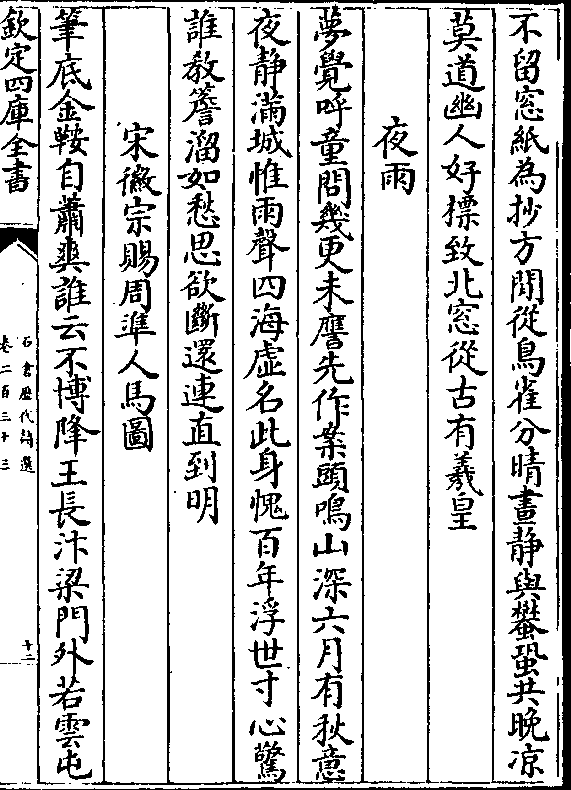 不留窓紙為抄方閒從鳥雀分晴晝静與蠭蛩共晚凉
莫道幽人好摽致北窓從古有羲皇
夜雨
夢覺呼童問幾更未譍先作案頭鳴山深六月有秋意
夜静滿城惟雨聲四海虚名此身愧百年浮世寸心驚
誰教簷溜如愁思欲斷還連直到明
宋徽宗賜周凖人馬圖
筆底金鞍自蕭爽誰云不博降王長汴梁門外若雲屯
欽定四庫全書
石倉歷代詩選
卷二百三十三
十二